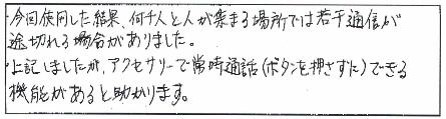 ・今回使用した結果、何千人と人が集まる場所では若干通信が
途切れる場合がありました。
・上記しましたが、アクセサリーで常時通話(ボタンを押さずに)できる
機能があると助かります。